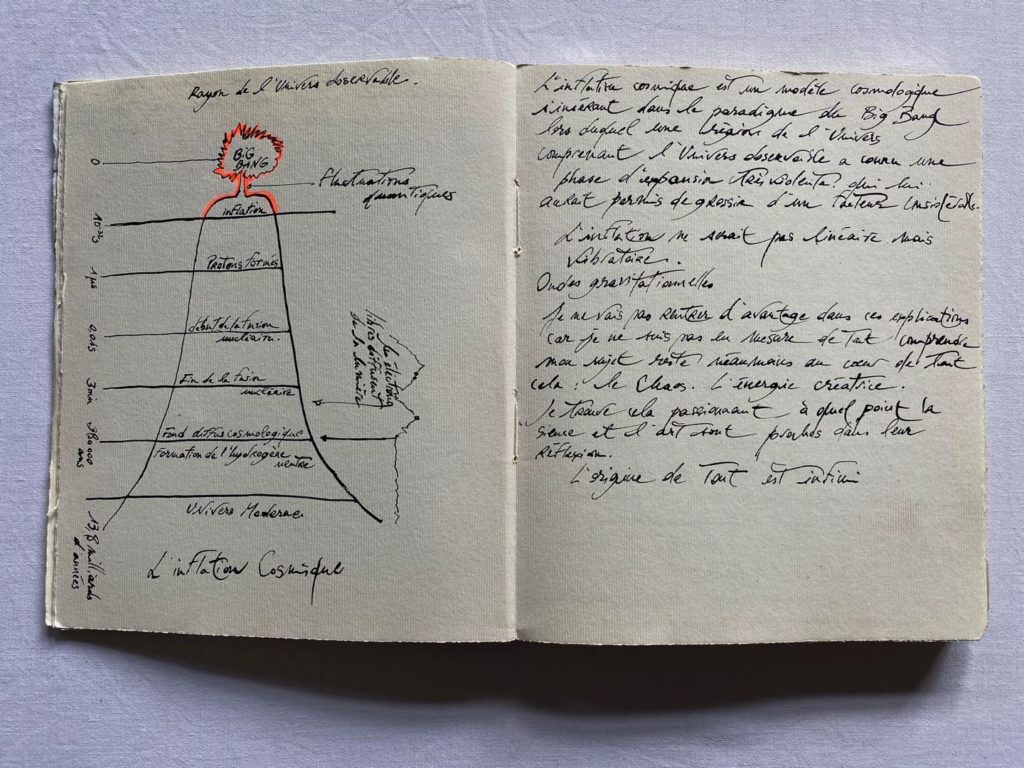 Rayon de l'Univers observable.
0
BiG
BANG
Fluctuations
quantiques
inflation
10⁻³²s
Protons formés
1 µs
début de la fusion
nucléaire.
0,01s
les électrons
libres diffusent
de la lumière
Fin de la fusion
nucléaire
3min
Fond diffus cosmologique
Formation de l'hydrogène
neutre
380 000
ans
UNivers Moderne
13,8 milliards
d'années
L'inflation Cosmique
L'inflation cosmique est un modèle cosmologique
s'insérant dans le paradigme du Big Bang
lors duquel une région de l'Univers
comprenant l'Univers observable a connu une
phase d'expansion très violente. qui lui
aurait permis de grossir d'un facteur considérable.
L'inflation ne serait pas linéaire mais
vibratoire.
Ondes gravitationnelles
Je ne vais pas rentrer d'avantage dans ces explications
car je ne suis pas en mesure de tout comprendre
mon sujet reste néanmoins au cœur de tout
cela : le Chaos. L'énergie créatrice.
Je trouve cela passionnant à quel point la
sience et l'art sont proches dans leur
réflexion.
L'origine de Tout est infini